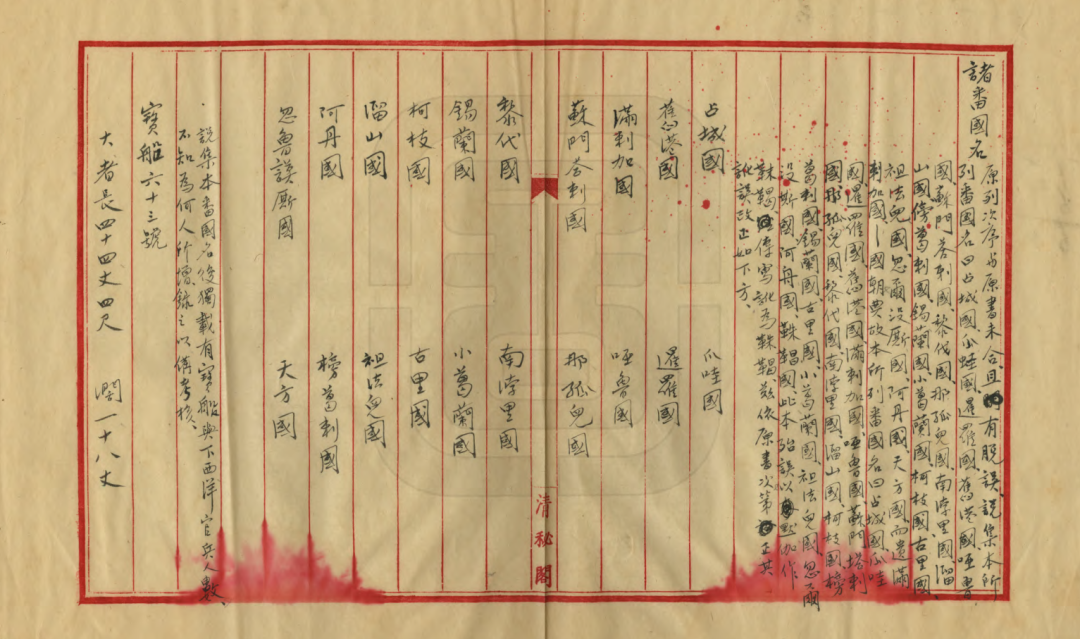 諸番國名
原列次序與原書未合且有脫誤說集本所
列番國名曰占城國爪哇國暹羅國舊港國啞魯
國蘇門荅剌國黎代國那孤兒國南渤里國溜
山國傍葛剌國錫蘭國小葛蘭國柯枝國古里國
祖法兒國忽爾沒厮國阿丹國天方國而遺滿
剌加國國朝典故本所列番國名曰占城國爪哇
國暹羅國舊港國滿剌加國啞魯國蘇門荅剌
國那孤兒國黎代國南渤里國溜山國柯枝國榜
葛剌國錫蘭國古里國小葛蘭國祖法兒國忽爾
沒斯國阿丹國靺鞨國此本殆誤以默伽作
靺鞨傳寫訛為靺鞨茲依原書次第正其
訛誤改正如下方
占城國 爪哇國
舊港國 暹羅國
滿剌加國 啞魯國
蘇門荅剌國 那孤兒國
黎代國 南渤里國
錫蘭國 小葛蘭國
柯枝國 古里國
溜山國 祖法兒國
阿丹國 榜葛剌國
忽魯謨厮國 天方國
說集本番國名後獨載有寶船與下西洋官兵人數
不知為何人所增錄之以備考核
寶船六十三號
大者長四十四丈四尺 闊一十八丈
清秘閣